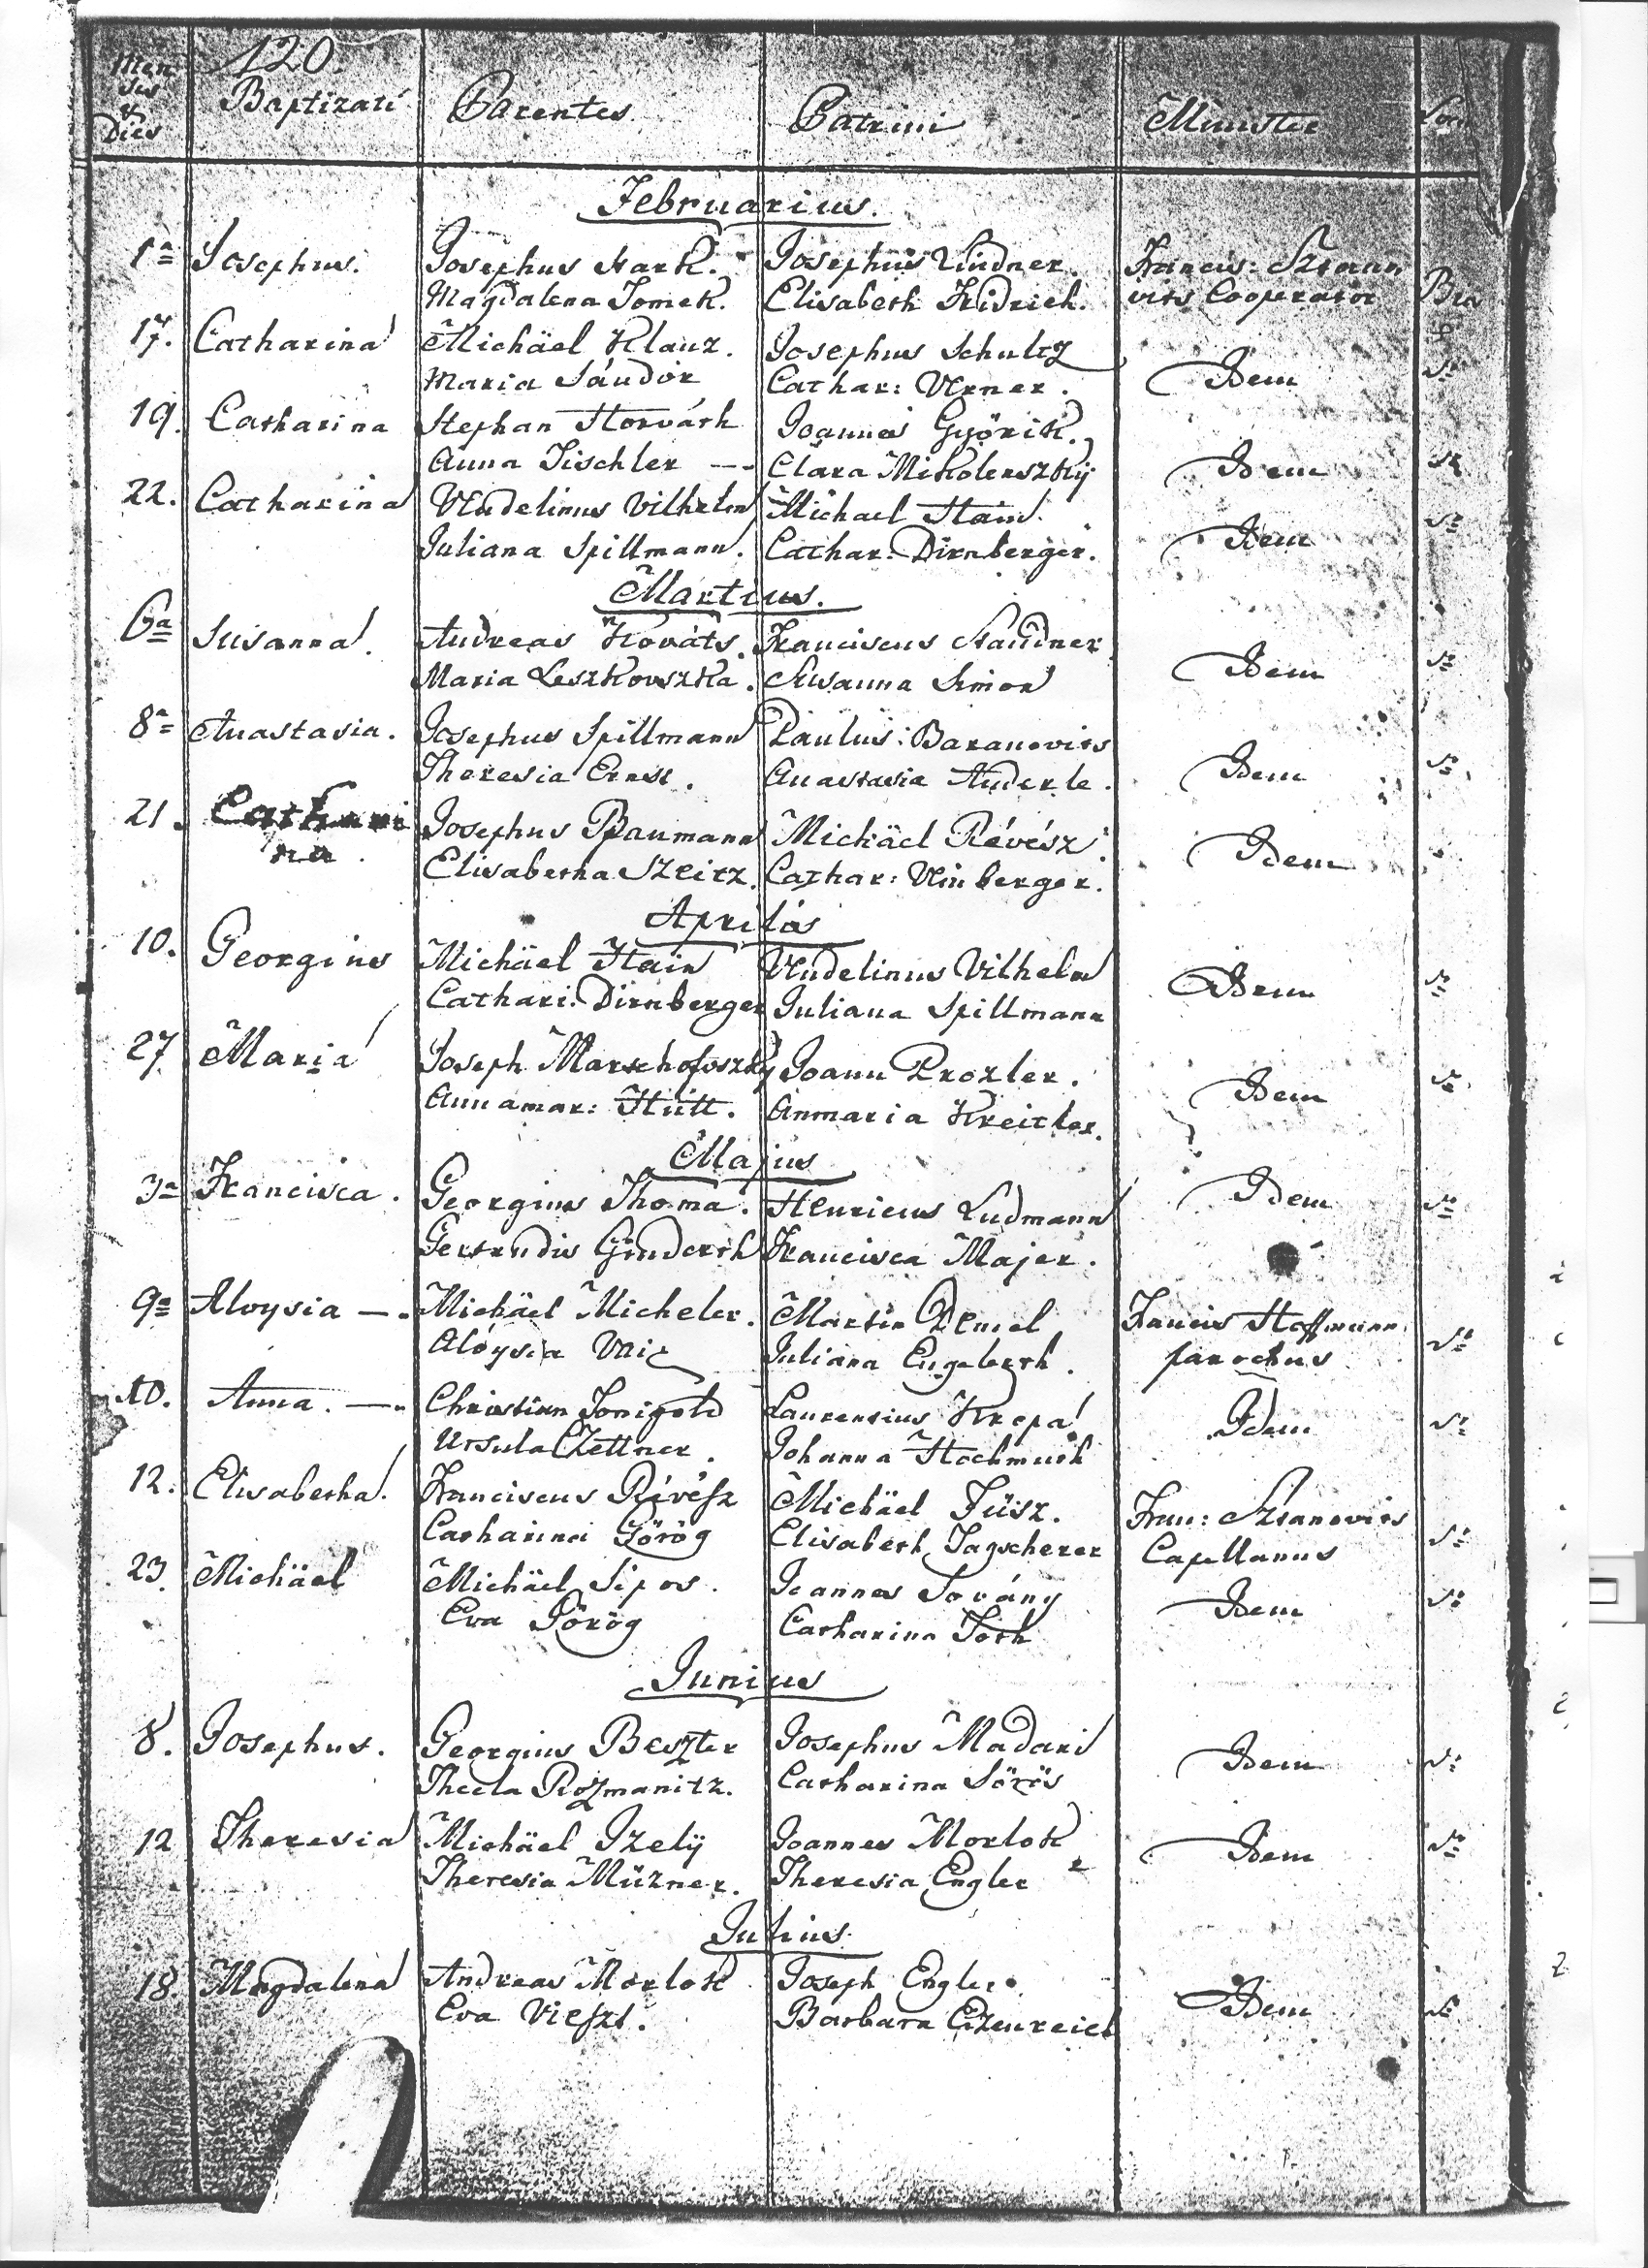 120.
Men
ses
&
Dies
Baptizati
Parentes
Patrini
Minister
Februarius.
1ª Josephus. Josephus Stark. Josephus Lindner. Francis: Sztanno
Magdalena Tomek. Elisabeth Fridrich. vits Cooperator
17. Catharina Michäel Klanz. Josephus Schultz
Maria Sándor Cathar: Urner. Idem
19. Catharina Stephan Horváth Joannes Györik.
Anna Tischler — Clara Mikolenszky Idem
22. Catharina Vendelinus Vilhelm Michael Stain.
Juliana Spillmann. Cathar: Dirnberger. Idem
Martius.
6ª Susanna. Andreas Kováts. Franciscus Staudner
Maria Leszkovszka. Susanna Simon Idem
8ª Anastasia. Josephus Spillmann Paulus: Baranovits
Theresia Ernst. Anastasia Anderle. Idem
21. Cathari Josephus Baumann Michäel Révész
na. Elisabetha Szeitz. Cathar: Vinberger. Idem
Aprilis
10. Georgius Michäel Stain Vendelinus Vilhelm
Cathari: Dirnberger Juliana Spillmann Idem
27. Maria Joseph Marschofszky Joann Proxler.
Annamar: Hütt. Anmaria Kreitler. Idem
Majus
3ª Francisca. Georgius Thoma. Henricus Ludmann Idem
Gertrudis Francisca Majer.
9ª Aloysia — Michäel Micheler. Martin Demel Francis Hoffmann
Aloysia Vaic Juliana Engelberth. parochus
10. Anna. — Christian Laurentius Krepa Idem
Ursula Zettner. Johanna Hochmuth
12. Elisabetha. Franciscus Révész Michäel Füsz. Fran: Sztanovits
Catharina Görög Elisabeth Tagscherer Capellanus
23. Michäel Michäel Sipos. Joannes Sovány
Eva Görög Catharina Toth Idem
Junius
8. Josephus. Georgius Beszter Josephus Madari
Thecla Rozmanitz. Catharina Sörös Idem
12 Theresia Michäel Izely Joannes Morlok
Theresia Müzner. Theresia Engler Idem
Julius
18. Magdalena Andreas Morlok Joseph Engler.
Eva Barbara Eizenreich Idem